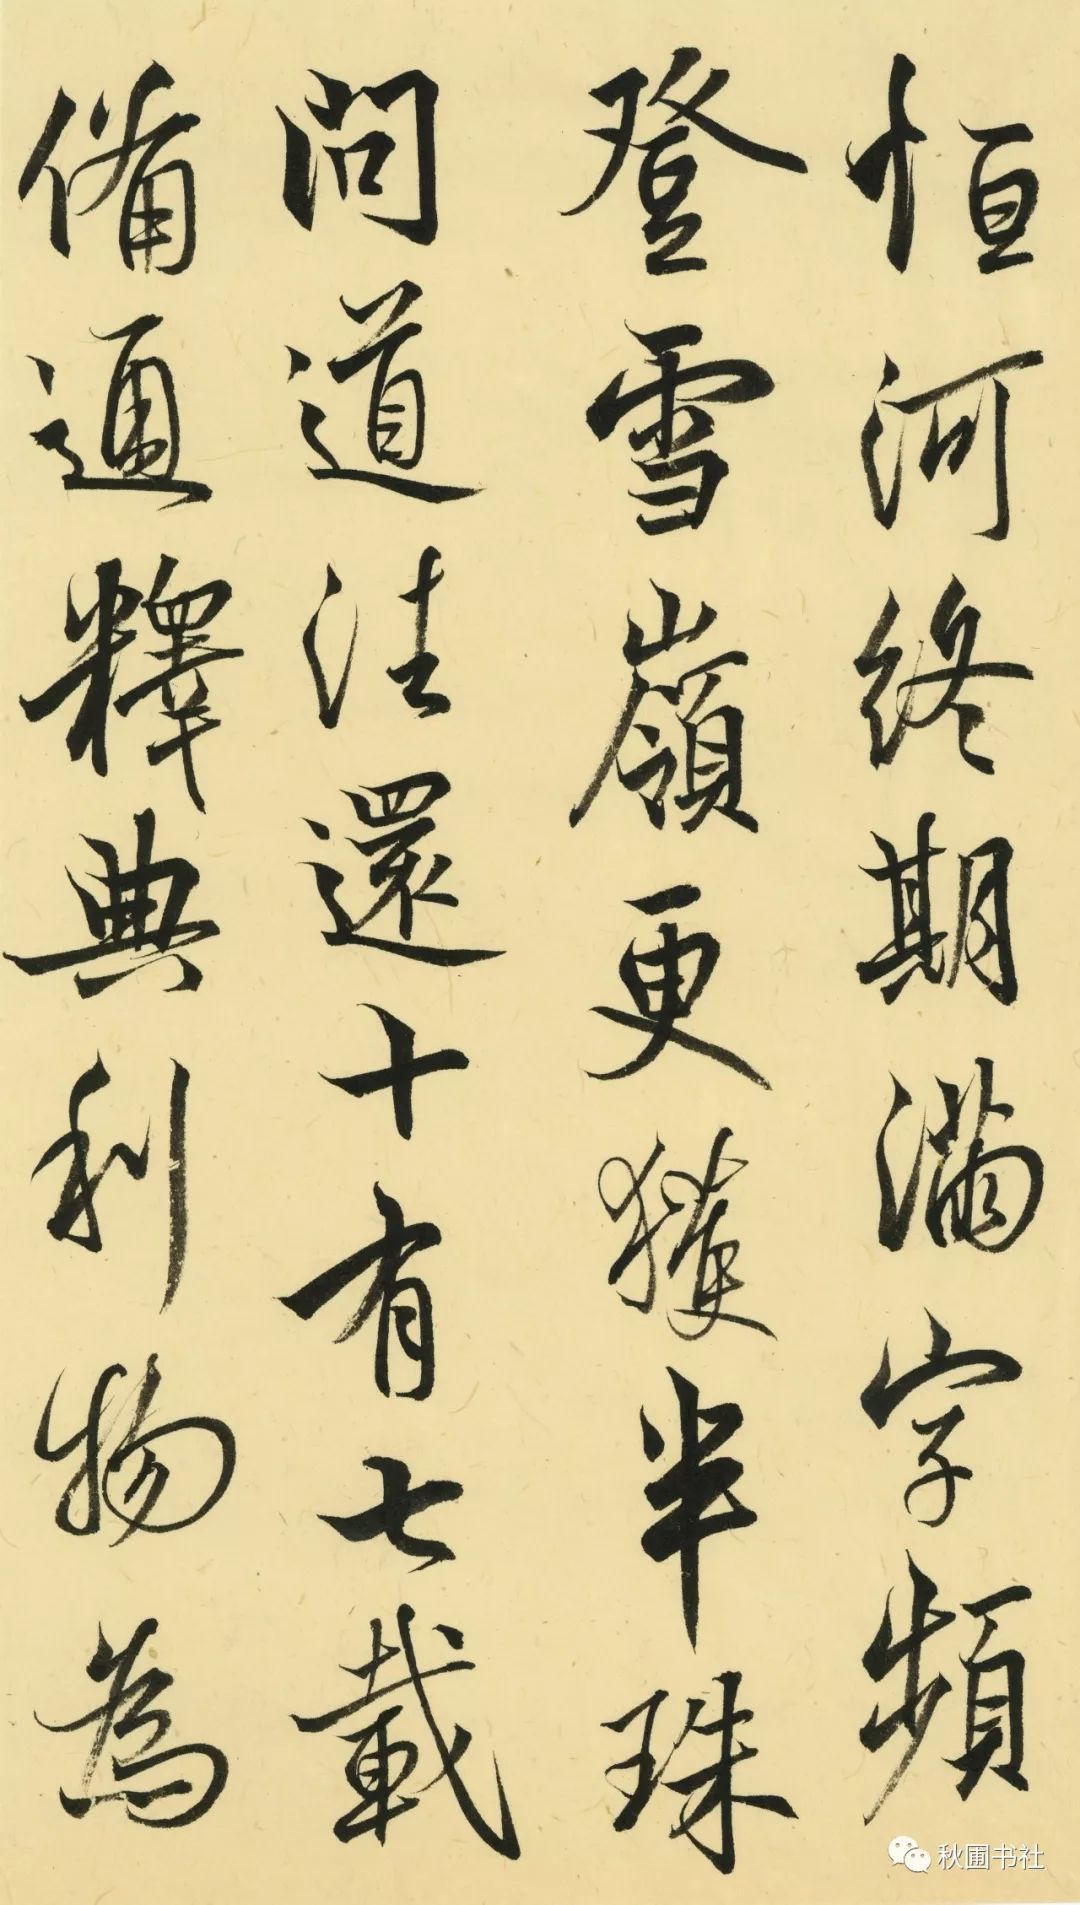 恒河終期滿字頻
登雪嶺更獲半珠
問道往還十有七載
備通釋典利物為
秋圃书社